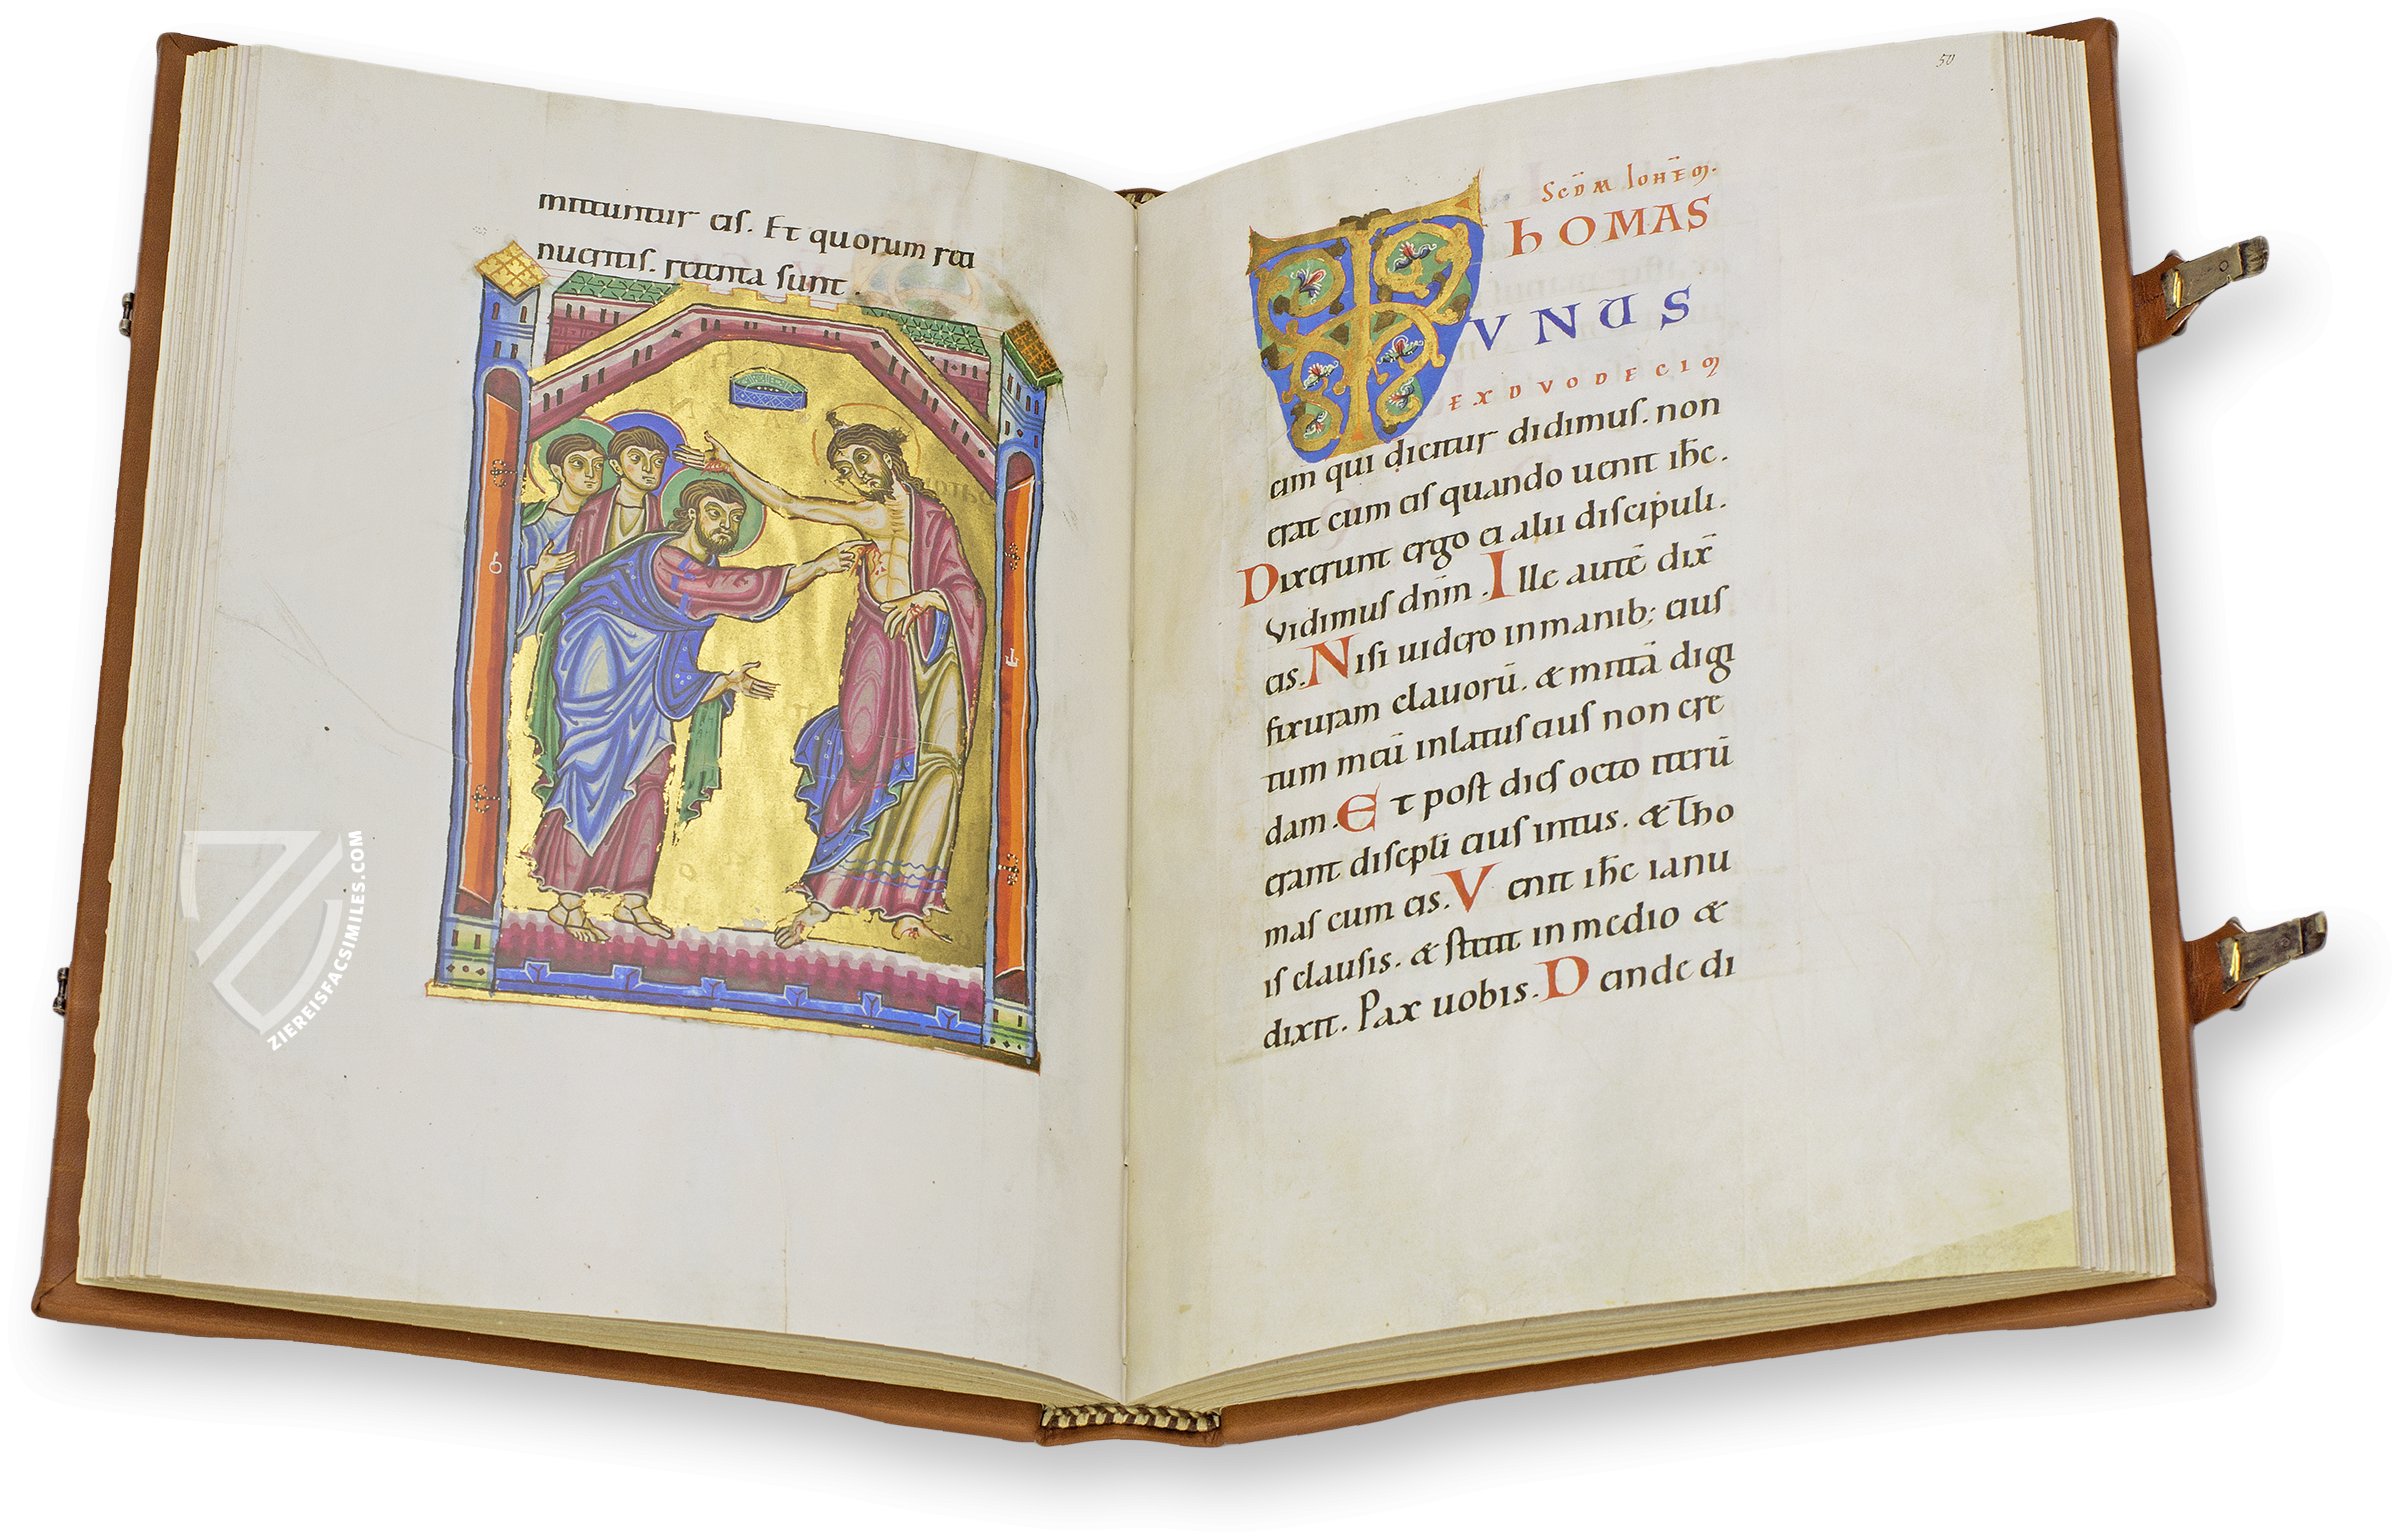 mittuntur eis. Et quorum reti
nueritis. retenta sunt.
ZIEREISFACSIMILES.COM
50
Scd̄m Ioħem.
T HOMAS
VNUS
EX DVODECIM
eim qui dicitur didimus. non
erat cum eis quando uenit ih̄c.
Dixerunt ergo ei alii discipuli.
Vidimus dn̄m. Ille autē dix̄
eis. Nisi uidero in manib; eius
fixuram clauorū. & mittā digi
tum meū in latus eius non cre
dam. Et post dies octo iterū
erant discipli eius intus. & Tho
mas cum eis. Venit ih̄c ianu
is clausis. & stetit in medio &
dixit. Pax uobis. Deinde di